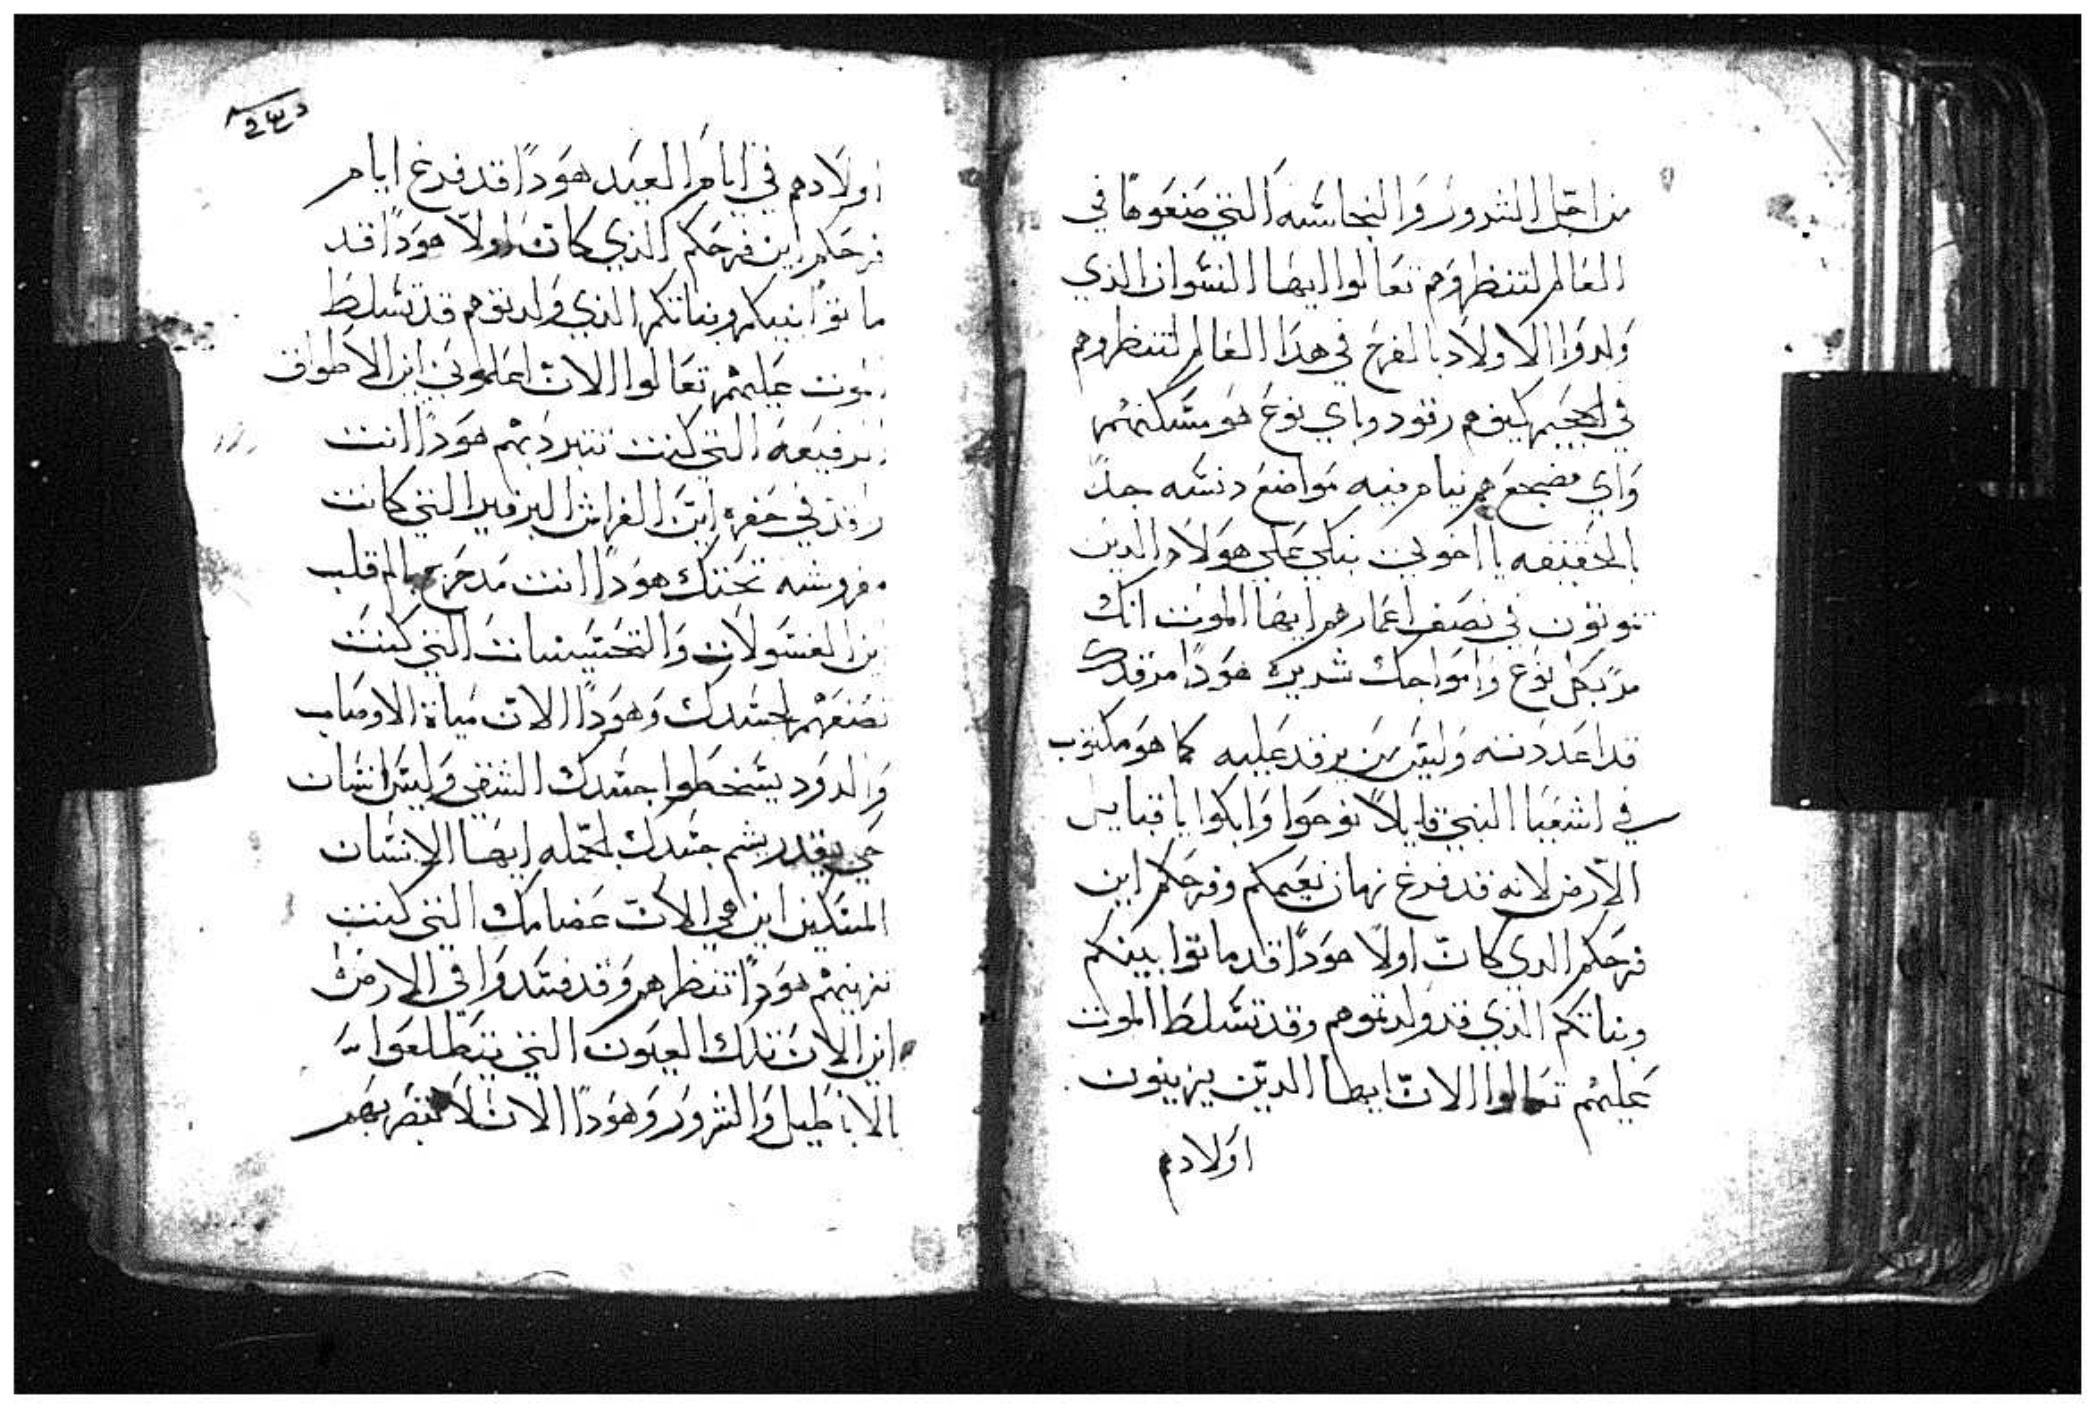 من اجل الشرور والنجاسه التي صنعوها في
العالم لتنظروهم تعالوا ايها النسوان الذي
ولدوا الاولاد بالفرح في هذا العالم لتنظروهم
في الجحيم كيف هم رقود وباي نوع هو مسكنهم
واي مضجع هم نيام فيه مواضع دنسه جداً
بالحقيقه يا اخوتي نبكي علي هولاء الدين
تموتون في نصف اعمارهم ايها الموت انك
مرّ بكل نوع وامواجك شريره هوداً مرقدك
قد اعد دنسه وليس من يرقد عليه كما هو مكتوب
في اشعيا النبي قايلاً نوحوا وابكوا يا قبايل
الارض لانه قد فرغ نهار نعيمكم وفرحكم اين
فرحكم الدي كان اولا هوداً قد ماتوا بينكم
وبناتكم الذي قد ولدتموهم وقد تسلط الموت
عليهم تعالوا الان ايها الدين يزينون
اولادهم
اولادهم في ايام العيد هوداً قد فرغ ايام
فرحكم اين فرحكم الذي كان اولاً هوداً قد
ماتوا بنيكم وبناتكم الذي ولدتوهم قد تسلط
الموت عليهم تعالوا الان اعلموني اين الاطواق
الرفيعه التي كنت تتبرد بهم هوداً انت
راقد في حفره اين الفراش البرفير التي كانت
مفروشه تحتك هوداً انت مدحرج بالم قلب
اين الغسولات والتحتيسات التي كنت
تصنعهم لجسدك وهوداً الان مياة الاوصاب
والدود يسخطوا جسدك الشقي وليس انسان
حي يقدر يشم جسدك لحمله ايها الانسان
المسكين اين هي الان عضامك التي كنت
تزينهم هوداً تنظرهم وقد فسدوا في الارض
اين الان تلك العيون التي يتطلعوا
الاباطيل والشرور وهوداً الان لا تبصر بهم